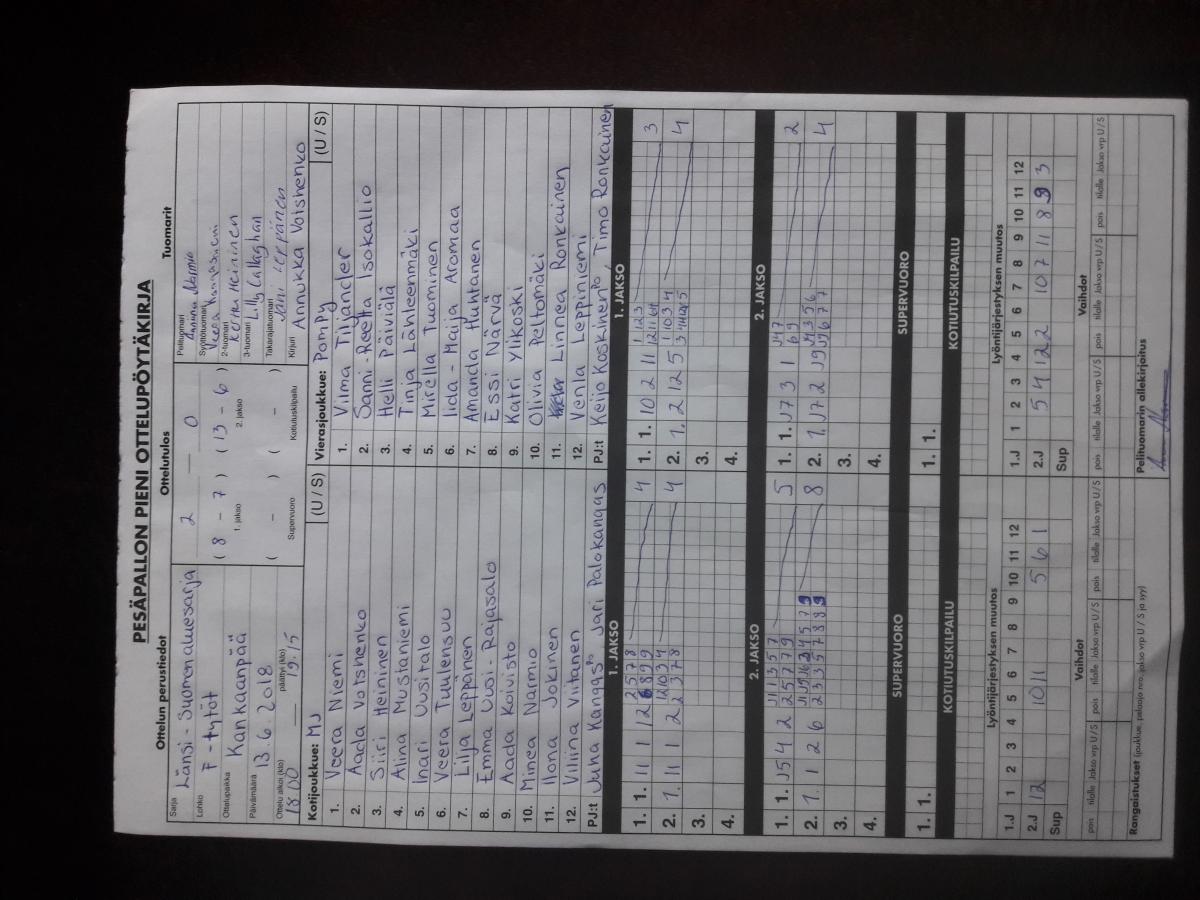 PESÄPALLON PIENI OTTELUPÖYTÄKIRJA
Ottelun perustiedot Ottelutulos Tuomarit
Sarja Länsi-Suomen aluesarja
Lohko F-tytöt
Ottelupaikka Kankaanpää
Päivämäärä 13.6.2018
Ottelu alkoi (klo) 18.00 päättyi (klo) 19:15
2 — 0
( 8 – 7 ) ( 13 – 6 )
1. jakso 2. jakso
( – ) ( – )
Supervuoro Kotiutuskilpailu
Pelituomari
Syöttötuomari Veera
2-tuomari Heininen
3-tuomari Lilly Callaghan
Takarajatuomari Jani Leppänen
Kirjuri Annukka Volshenko
Kotijoukkue: MJ (U / S)
1. Veera Niemi
2. Aada Votshenko
3. Siiri Heininen
4. Alina Mustaniemi
5. Inari Uusitalo
6. Veera Tuulensuu
7. Lilja Leppänen
8. Emma Uusi-Rajasalo
9. Aada Koivisto
10. Minea Narmio
11. Ilona Jokinen
12. Viliina Viitanen
PJ:t Juha Kangas Jari Palokangas
Vierasjoukkue: PomPy (U / S)
1. Vilma Tiljander
2. Sanni-Reetta Isokallio
3. Helli Päiviälä
4. Tinja Lähteenmäki
5. Mirella Tuominen
6. Iida-Maija Aromaa
7. Amanda Huhtanen
8. Essi Närvä
9. Katri Ylikoski
10. Olivia Peltomäki
11. Linnea Ronkainen
12. Venla Leppiniemi
PJ:t Keijo Koskinen, Timo Ronkainen
1. JAKSO 1. JAKSO
1. 1. 11 1 12 4
2. 1. 11 1 2 4
3.
4.
1. 1. 10 2 11 3
2. 1. 2 12 5 4
3.
4.
2. JAKSO 2. JAKSO
1. 1. J5 4 2 5
2. 1. 1 2 6 8
3.
4.
1. 1. J7 3 1 2
2. 1. J7 2 J9 4
3.
4.
SUPERVUORO SUPERVUORO
1. 1. 1. 1.
KOTIUTUSKILPAILU KOTIUTUSKILPAILU
Lyöntijärjestyksen muutos
1.J 1 2 3 4 5 6 7 8 9 10 11 12
2.J 12 10 11 5 6 1
Sup
Vaihdot
pois tilalle Jakso vrp U/S pois tilalle Jakso vrp U/S pois tilalle Jakso vrp U/S
Lyöntijärjestyksen muutos
1.J 1 2 3 4 5 6 7 8 9 10 11 12
2.J 5 4 12 2 10 7 11 8 9 3
Sup
Vaihdot
pois tilalle Jakso vrp U/S pois tilalle Jakso vrp U/S pois tilalle Jakso vrp U/S
Rangaistukset (joukkue, pelaaja nro, jakso vrp U / S ja syy)
Pelituomarin allekirjoitus